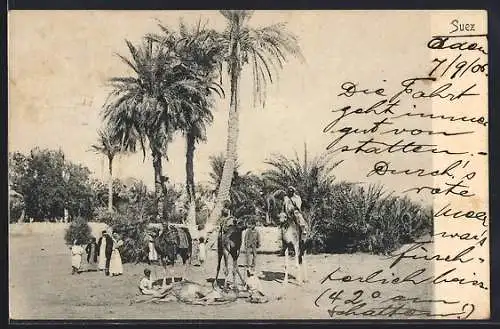 Suez
Aden
7/9/06.
Die Fahrt
geht immer
gut von
statten. –
Durch's
rote
Meer
war's
fürch-
terlich heiss
(42° am
Schatten!)